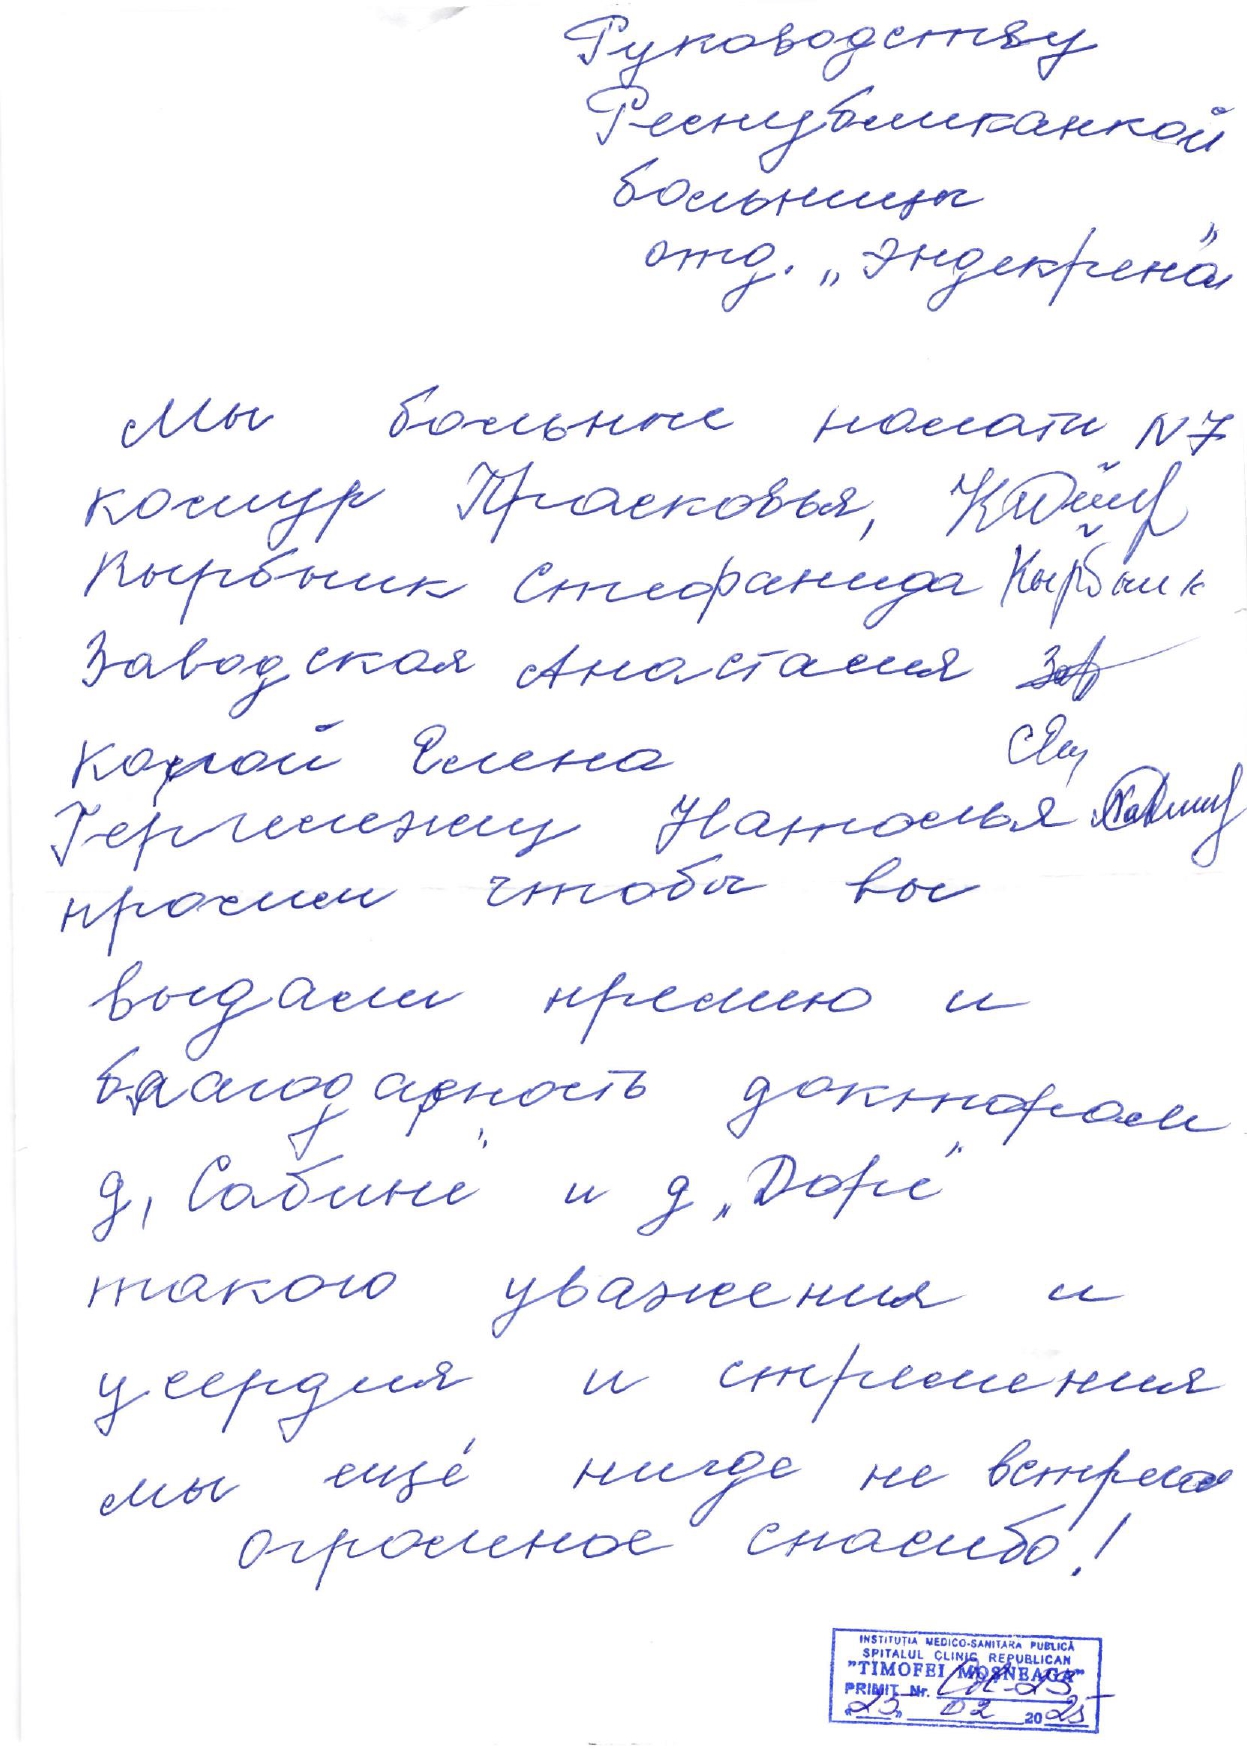 Руководству
Республиканкой
больницы
отд. „Эндекрена"
Мы больные палаты N7
Кошур Прасковья,
Кырбыик Стефанида Кырбыик
Заводская Анастасия Зав
Елена
Гергележиу Наталья
просим чтобы вы
выдали премию и
благодарность докторам
д, Сабине" и д „Доре"
такого уважения и
усердия и стремения
мы ещё нигде не встреча
огромное спасибо!
INSTITUȚIA MEDICO-SANITARA PUBLICĂ
SPITALUL CLINIC REPUBLICAN
"TIMOFEI MOȘNEAGA"
PRIMIT Nr.
"25" 02 2025